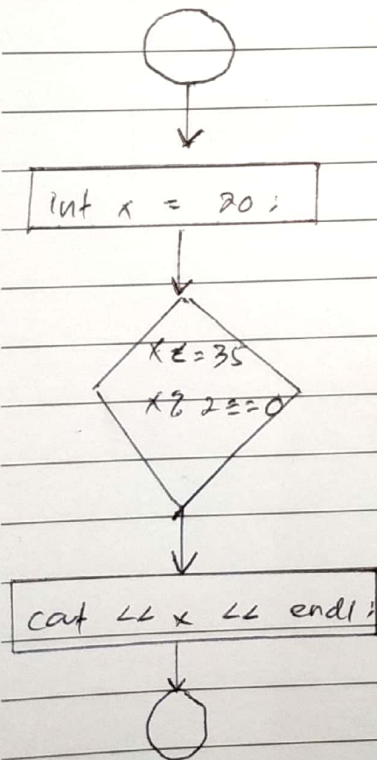 int x = 20;
x <= 35
x % 2 == 0
cout << x << endl;